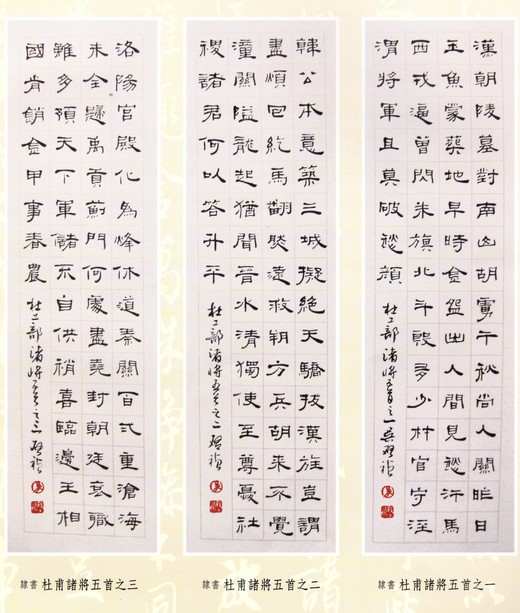 漢朝陵墓對南山胡虜千秋尚入關昨日
玉魚蒙葬地早時金盌出人間見愁汗馬
西戎逼曾閃朱旗北斗殷多少材官守涇
渭將軍且莫破愁顏
杜工部諸將五首之一
隸書 杜甫諸將五首之一
韓公本意築三城擬絕天驕拔漢旌豈謂
盡煩回紇馬翻然遠救朔方兵胡來不覺
潼關隘龍起猶聞晉水清獨使至尊憂社
稷諸君何以答升平
杜工部諸將五首之二
隸書 杜甫諸將五首之二
洛陽宮殿化為烽休道秦關百弍重滄海
未全歸禹貢薊門何處盡堯封朝廷袞職
雖多預天下軍儲不自供稍喜臨邊王相
國肯銷金甲事春農
杜工部諸將五首之三
隸書 杜甫諸將五首之三